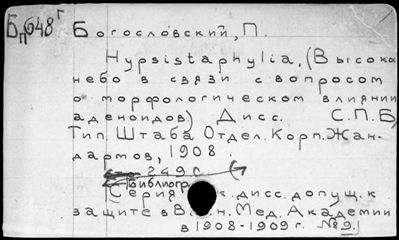 Бп648г Богословский, П.
Hypsistaphylia, (Высокое
небо в связи с вопросом
о морфологическом влиянии
аденоидов) Дисс. С.П.Б,
Тип. Штаба Отдел. Корп. Жан-
дармов, 1908.
249 с.
Библиогр
(Серия к. дисс. допущ. к
защите в В. н. Мед. Академии
в 1908-1909 г. №9.)